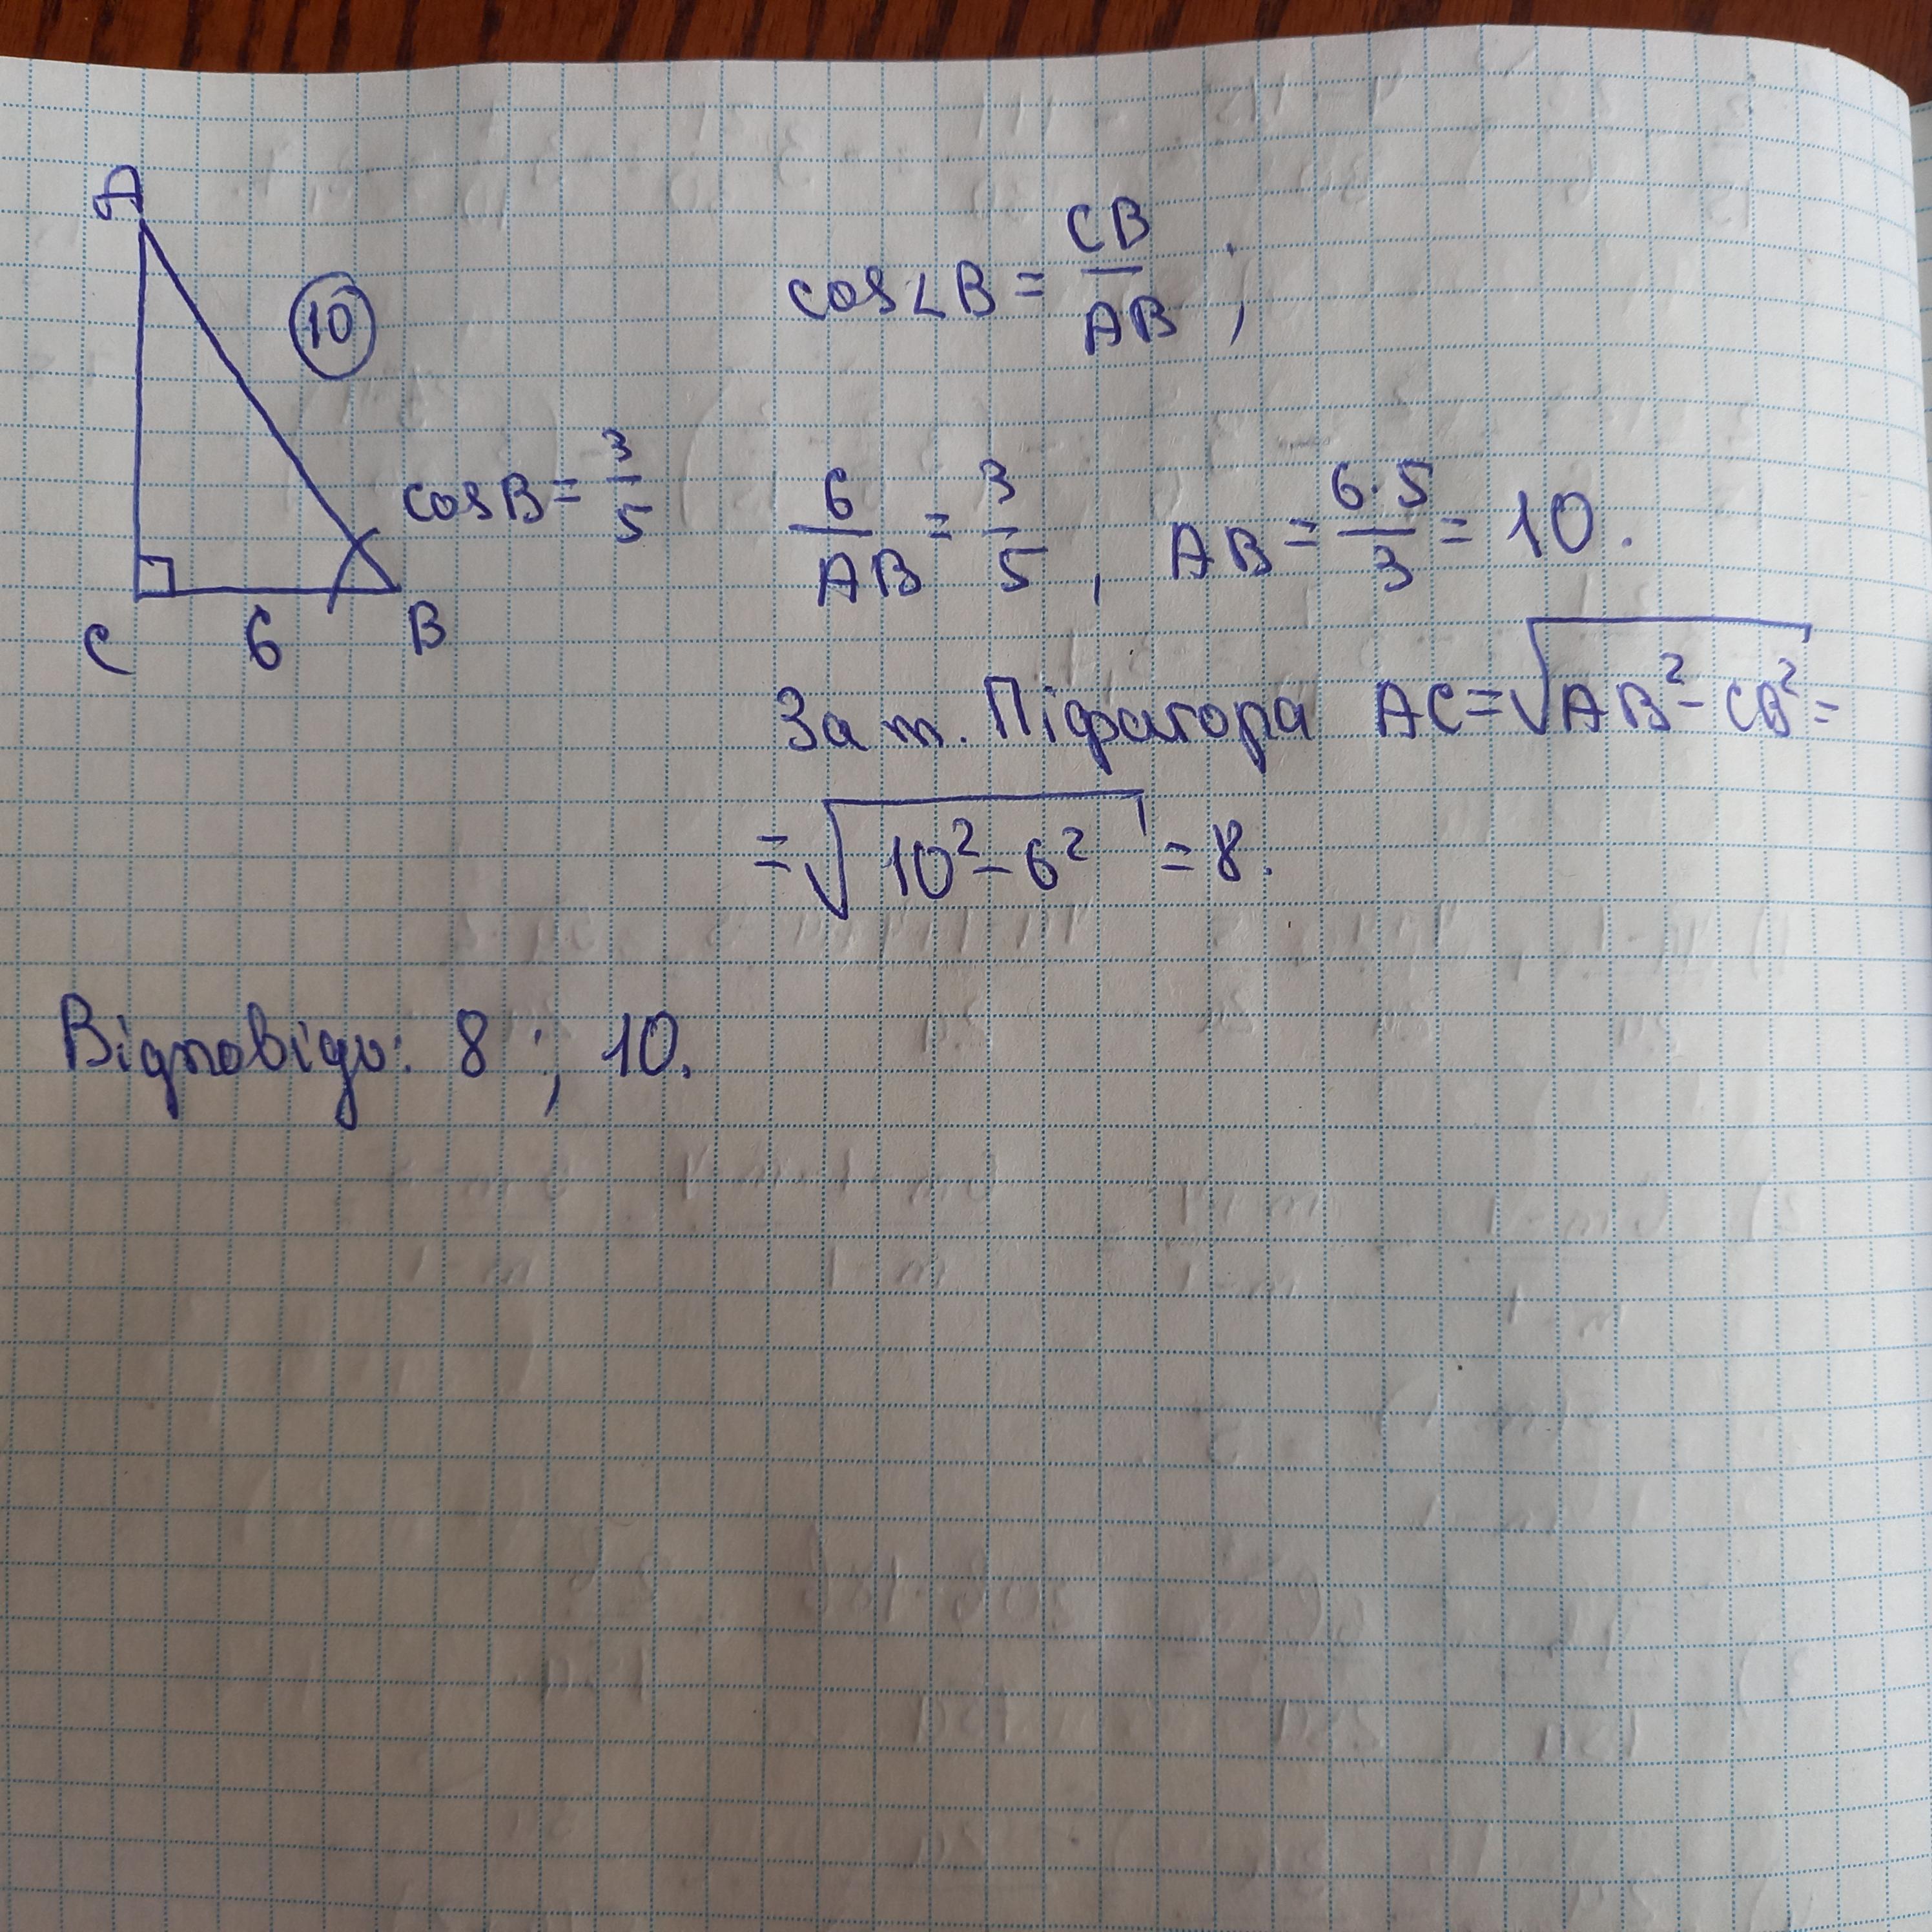 A
10
cosB = 3/5
C 6 B
cos∠B = CB/AB ;
6/AB = 3/5 , AB = 6·5/3 = 10.
За т. Піфагора AC = √(AB² - CB²) =
= √(10² - 6²) = 8.
Відповідь: 8 ; 10.